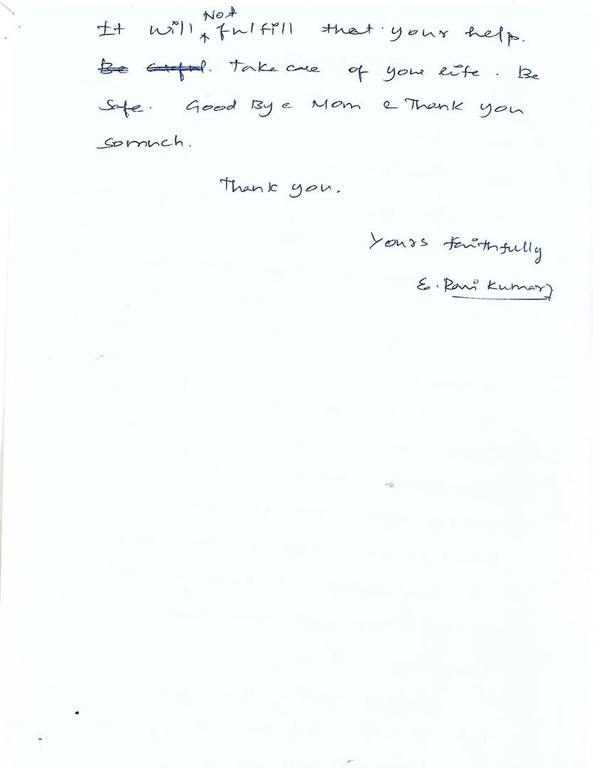 It will Not fulfill that your help.
Be Careful. Take care of your life. Be
Safe. Good Bye Mom & Thank you
somuch.
Thank you.
Yours faithfully
E. Ravi Kumar